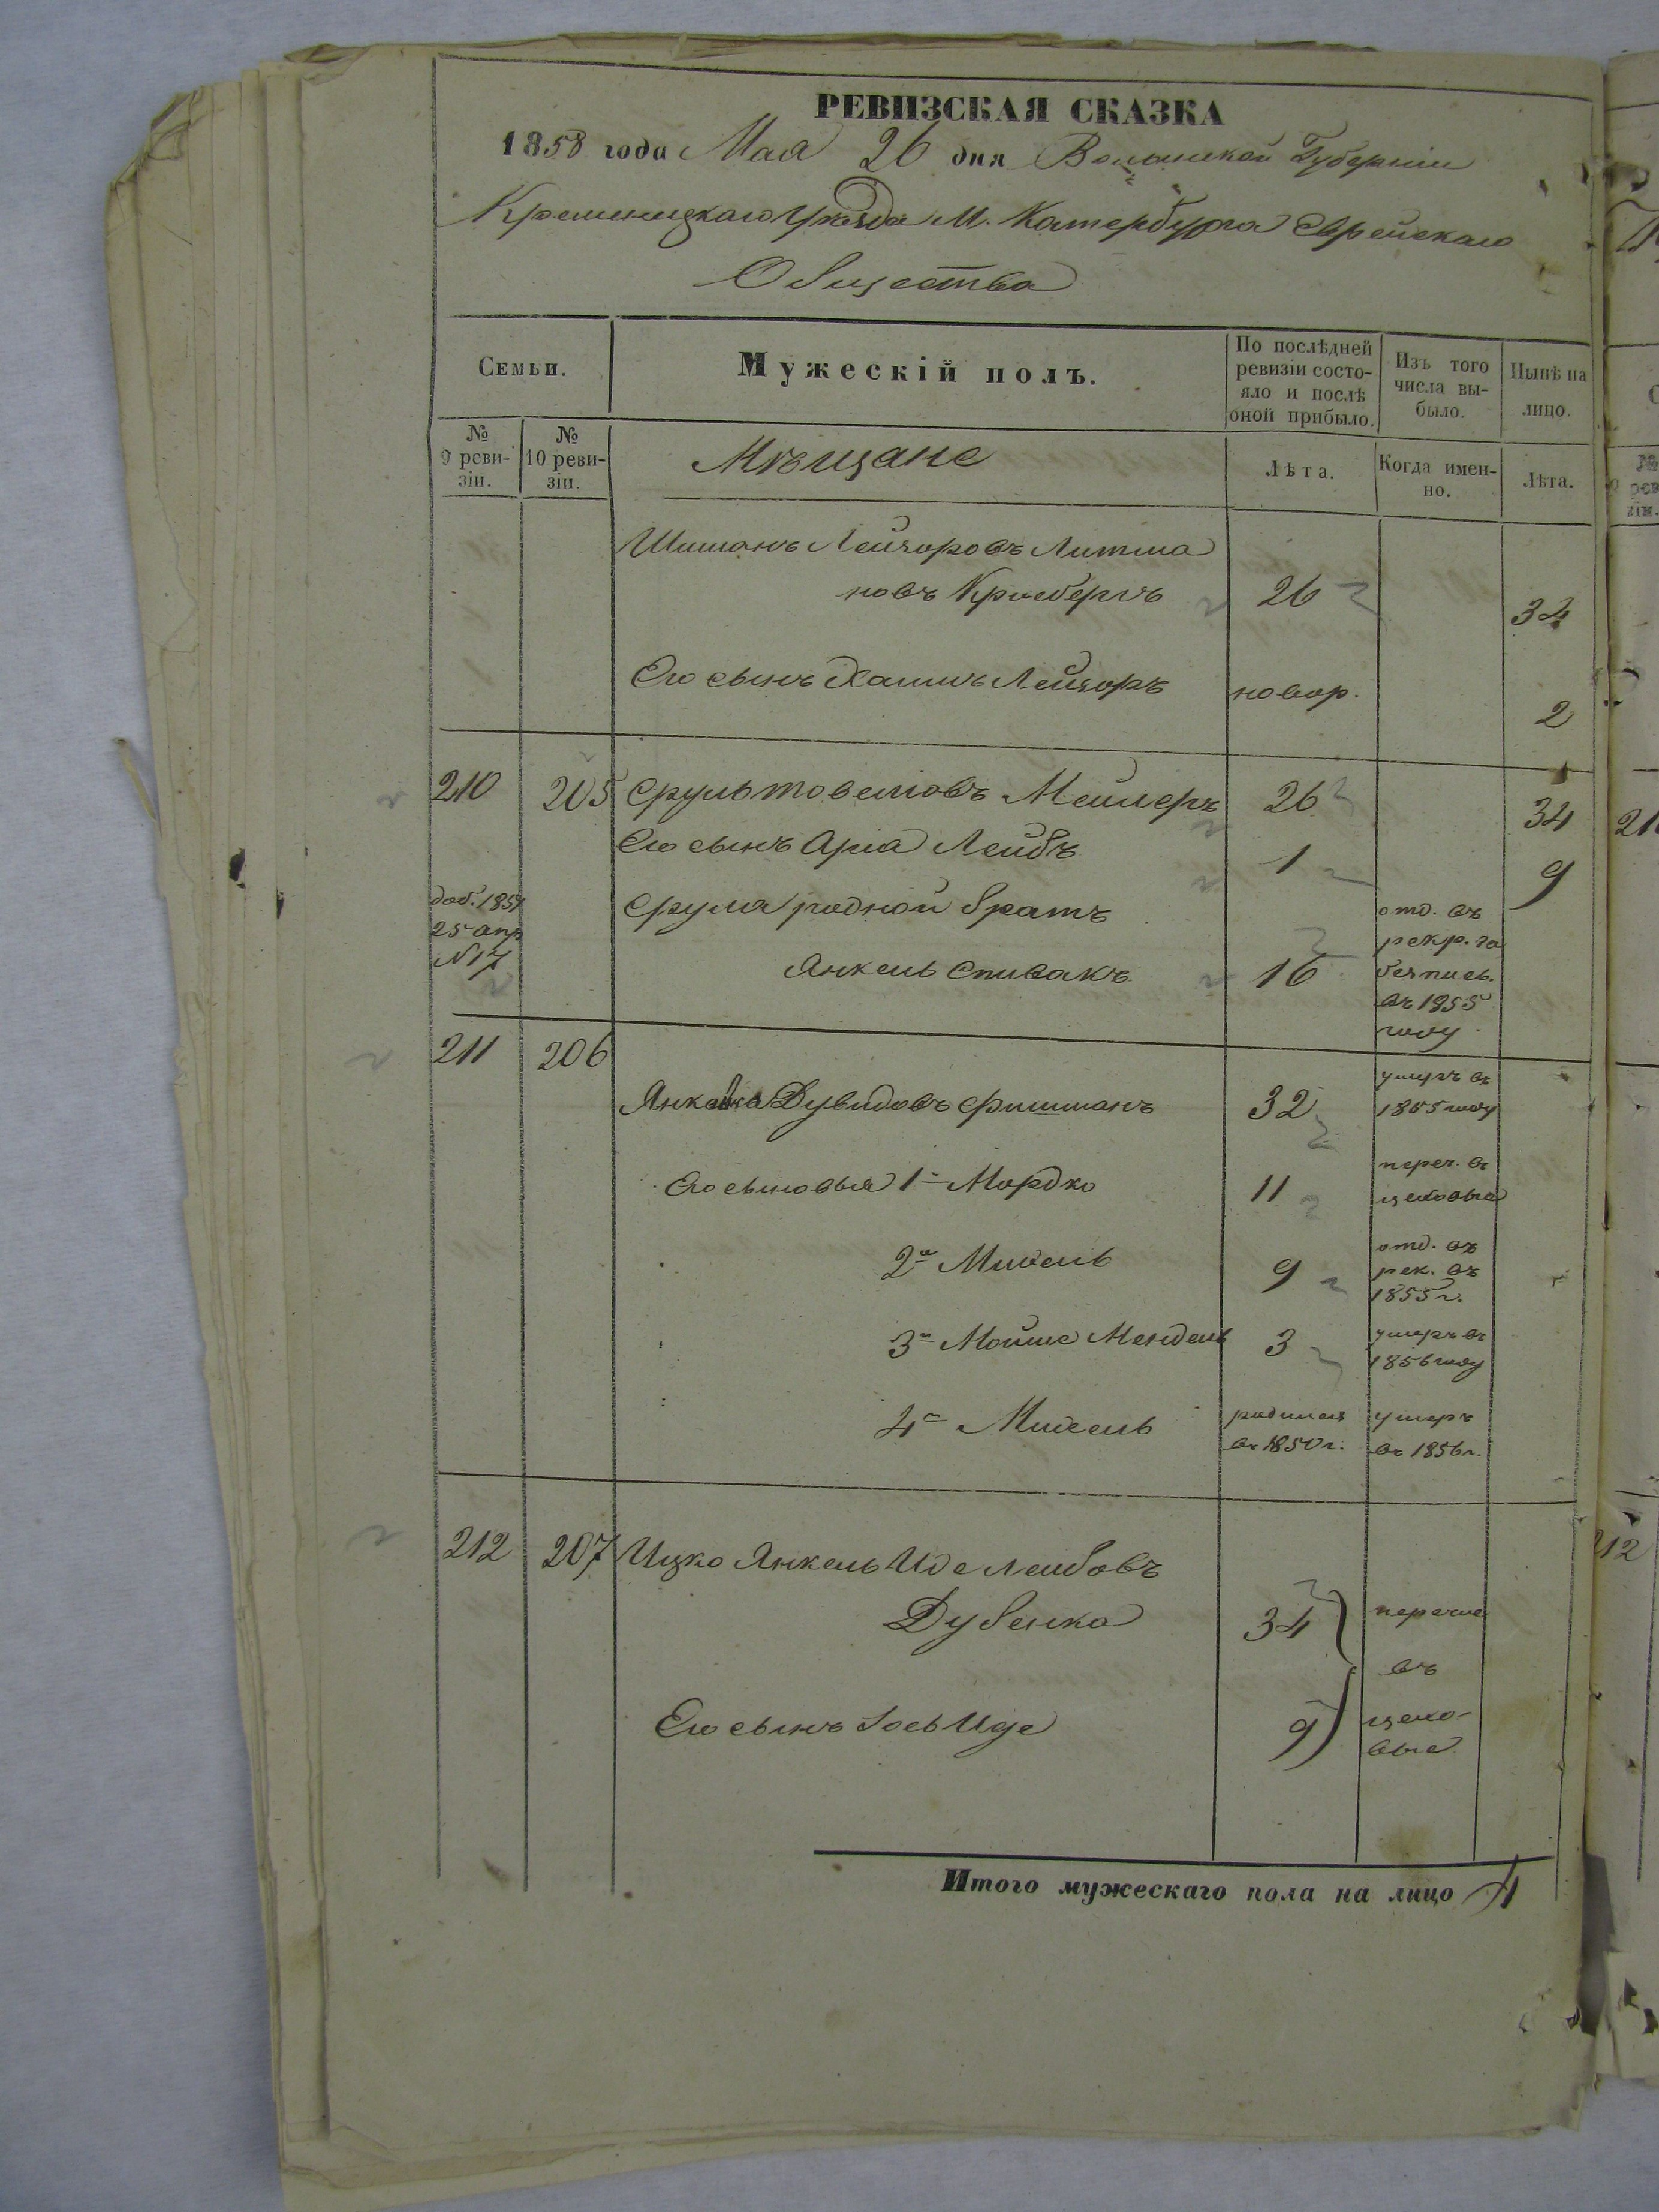 РЕВИЗСКАЯ СКАЗКА
1858 года Мая 26 дня Волынской Губерніи
Кременецкаго Уѣзда М. Катербурга Еврейскаго
Общества
Семьи.
Мужескій полъ.
По послѣдней
ревизіи состо-
яло и послѣ
оной прибыло.
Изъ того
числа вы-
было.
Нынѣ на
лицо.
№
9 реви-
зіи.
№
10 реви-
зіи.
Мѣщане
Лѣта.
Когда имен-
но.
Лѣта.
Шиманъ Лейзоровъ Литма
новъ 26 34
Его сынъ Хаимъ Лейзоръ новор. 2
210 205 Сруль Мейлеръ 26 34
Его сынъ Аріа Лейбъ 1 9
доб. 1851
25 апр
№17
Срула родной братъ
Янкель Спивакъ 16
отд. въ
рекр. за
безпись.
въ 1855
году
211 206
Дувидовъ Фишманъ 32
умеръ въ
1855 году
Его сыновья 1й Мордко 11
переч. въ
цеховые
2й Михель 9
отд. въ
рек. въ
1855 г.
3й Мойше Мендель 3
умеръ въ
1856 году
4й Михель
родился
въ 1850 г.
умеръ
въ 1856 г.
212 207 Ицко Янкель Иде Лейбовъ
34
въ
Его сынъ Іось Иде 9
цехо-
вые
Итого мужескаго пола на лицо 4